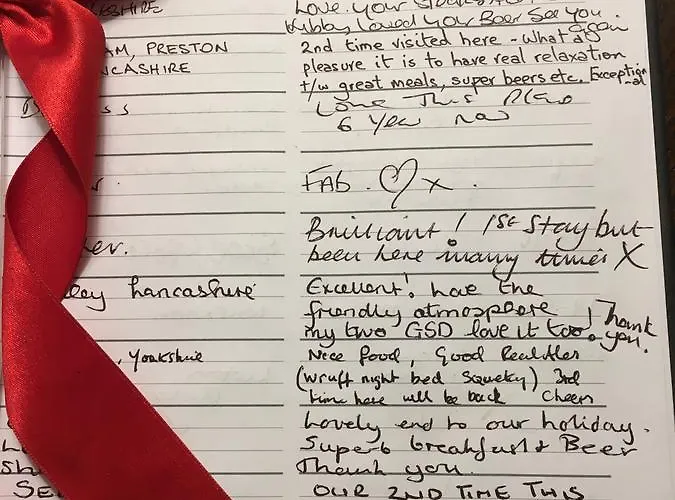 SHIRE
Love your
Kibby loved your Beer See you
again
2nd time visited here - What a
AM, PRESTON
pleasure it is to have real relaxation
NCASHIRE
t/w great meals, super beers etc. Exception
-al
Love This Place
6 Year now
FAB. ♡ x.
Brilliant! 1st Stay but
er.
been here many times X
ley Lancashire
Excellent! Love the
friendly atmosphere
my two GSD love it too! Thank
you.
, Yorkshire
Nice food, Good Real Ales
(Wruff night bed Squeky) 3rd
time here will be back Cheers
Lovely end to our holiday.
Superb breakfast & Beer
Thank you.
OUR 2ND TIME THIS